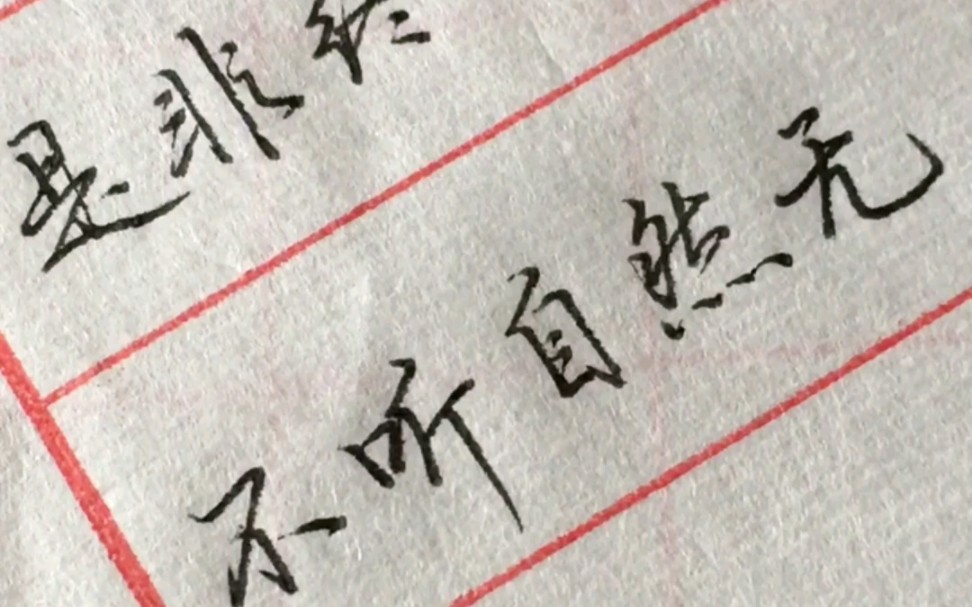 是非终
不听自然无